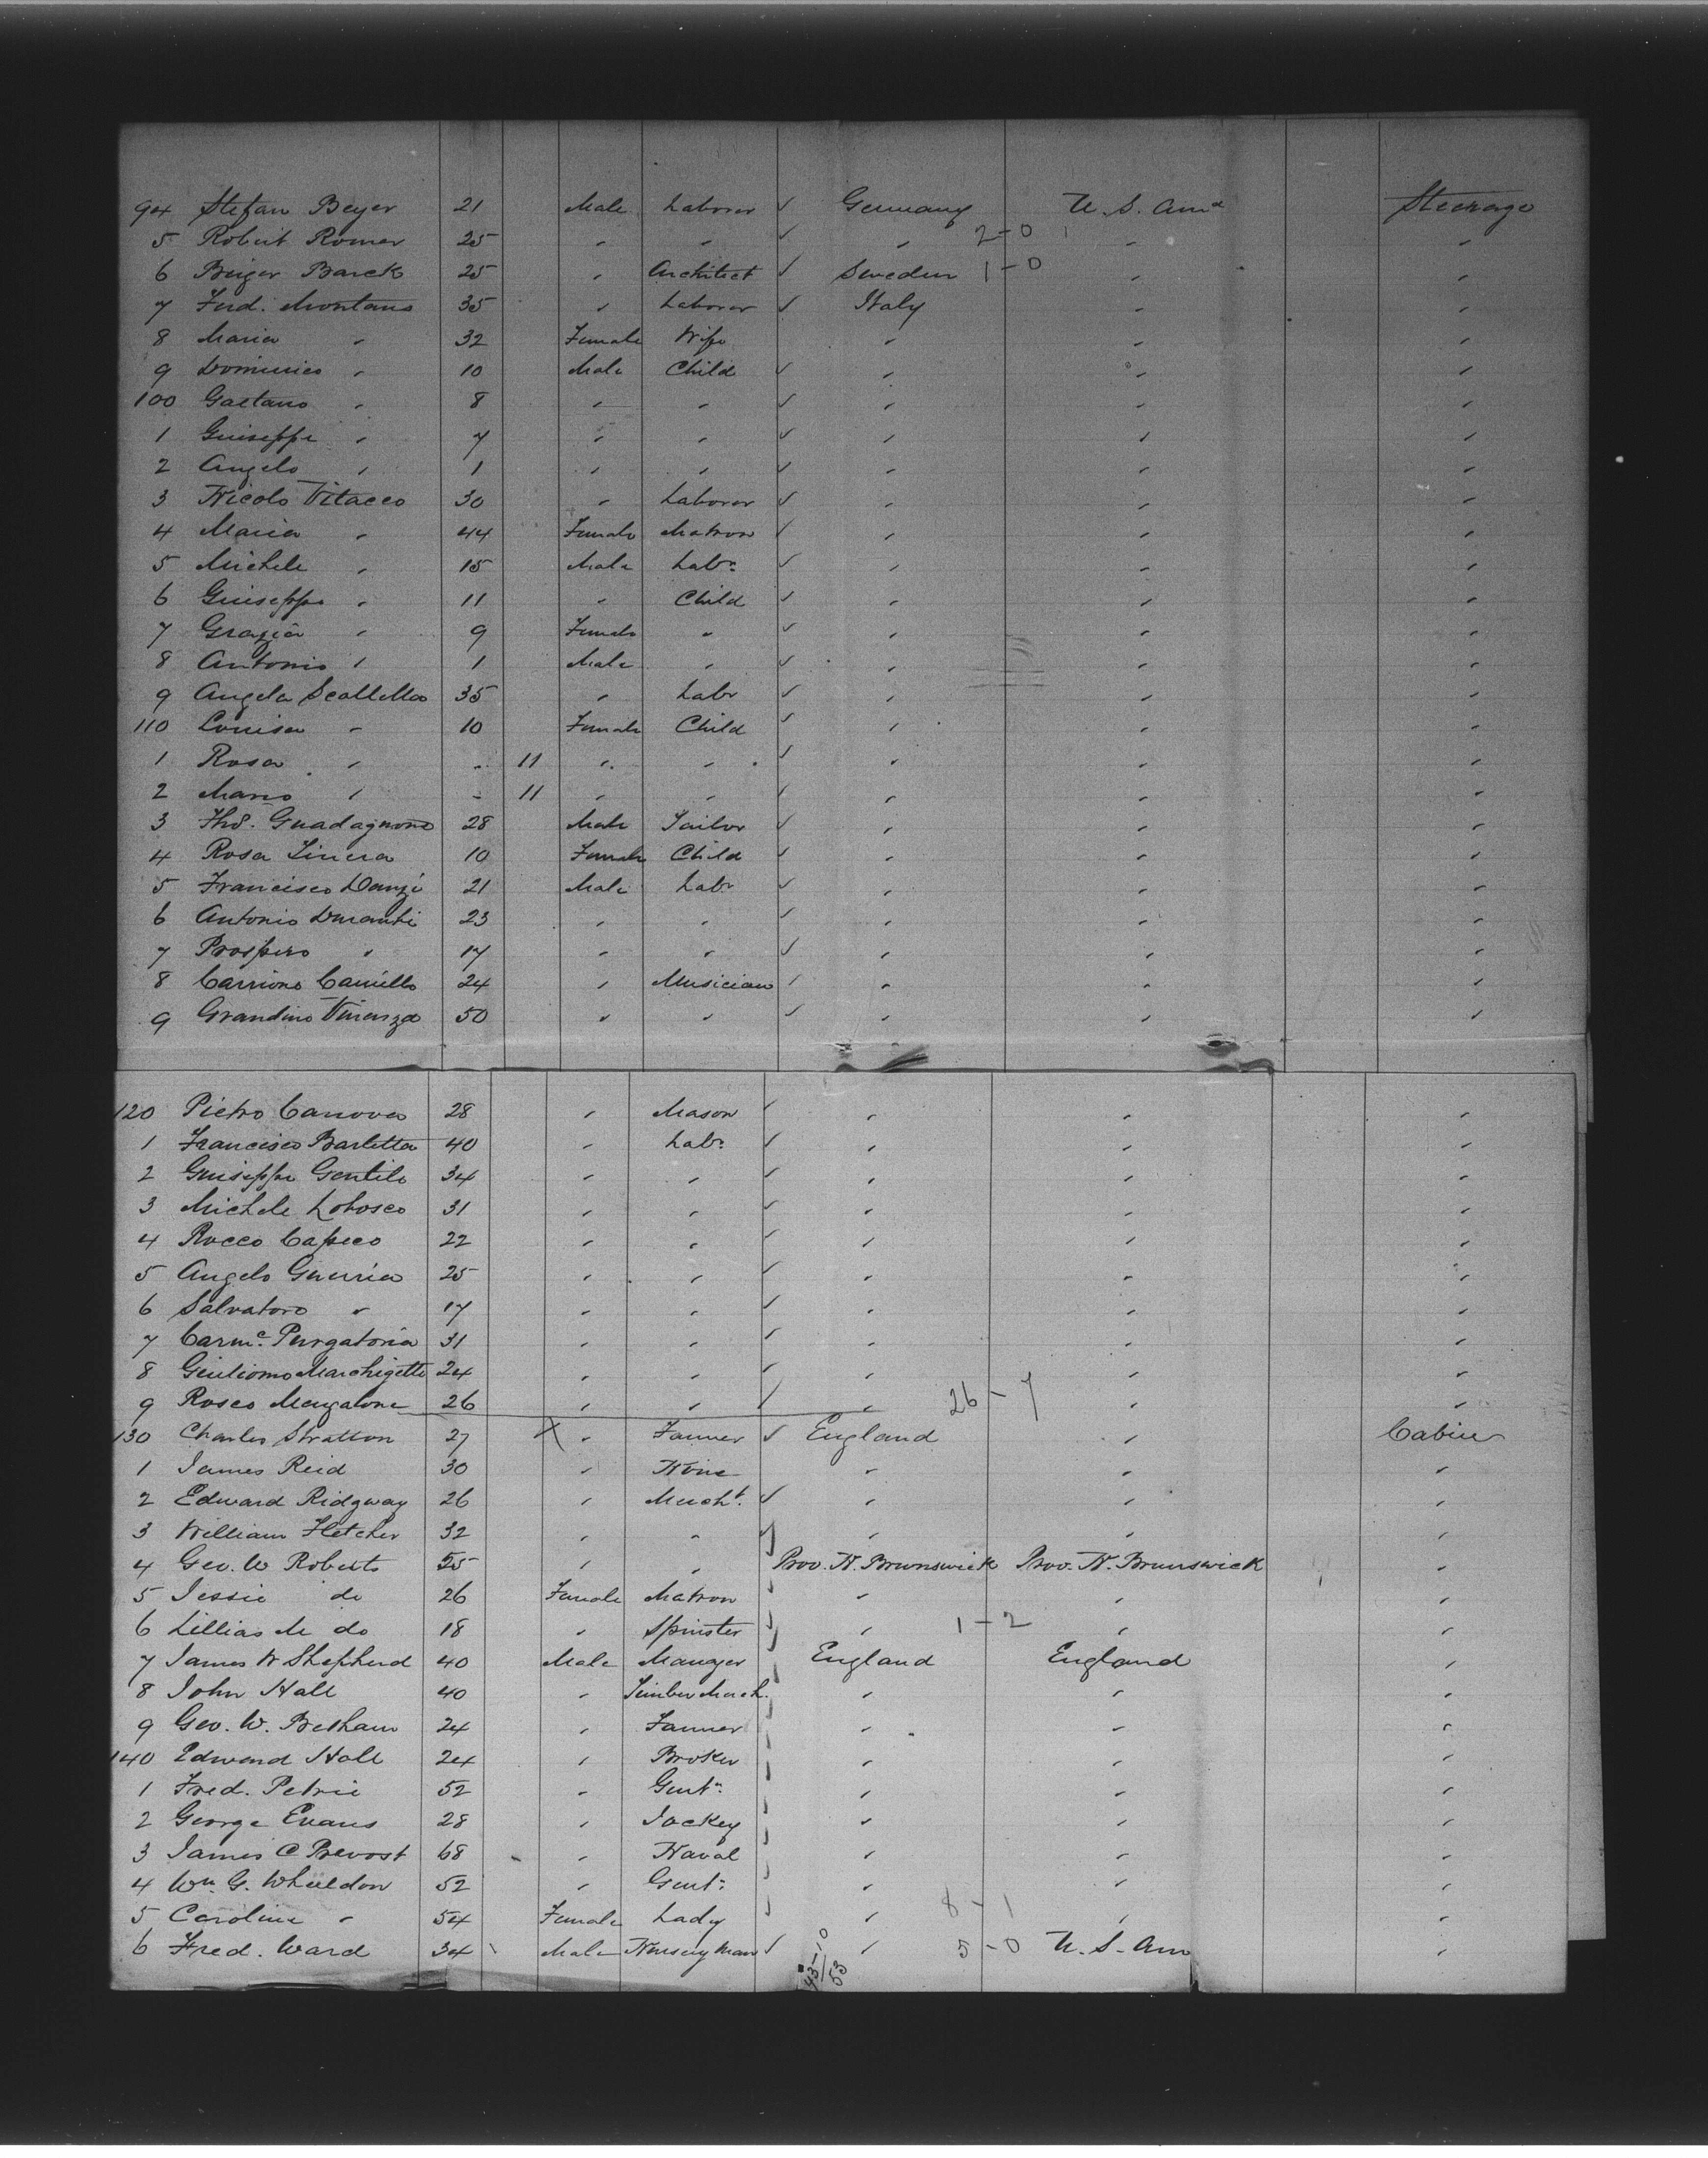 94 Stefan Beyer 21 Male Laborer ✓ Germany U. S. Ama Steerage
5 Robert Romer 25 " " ✓ " 2-0 " "
6 Birger Barck 25 " Architect ✓ Sweden 1-0 " "
7 Ferd. Montano 35 " Laborer ✓ Italy " "
8 Maria " 32 Female Wife " " "
9 Dominico " 10 Male Child ✓ " " "
100 Gaetano " 8 " " ✓ " " "
1 Guiseppe " 7 " " ✓ " " "
2 Angelo " 1 " " ✓ " " "
3 Nicolo Vitacco 30 " Laborer ✓ " " "
4 Maria " 44 Female Matron ✓ " " "
5 Michele " 15 Male Labr ✓ " " "
6 Guiseppe " 11 " Child ✓ " " "
7 Grazia " 9 Female " ✓ " " "
8 Antonio " 1 Male " ✓ " " "
9 Angela Scallella 35 " Labr ✓ " " "
110 Louisa " 10 Female Child ✓ " " "
1 Rosa " - 11 " " ✓ " " "
2 Maria " - 11 " " ✓ " " "
3 Guadagnono 28 Male Tailor ✓ " " "
4 Rosa Linera 10 Female Child ✓ " " "
5 Francisco Danzi 21 Male Labr ✓ " " "
6 Antonio Duranti 23 " " ✓ " " "
7 Prospero " 17 " " ✓ " " "
8 Carrione Camillo 24 " Musician ✓ " " "
9 Grandino Vincenza 50 " " ✓ " " "
120 Pietro Canova 28 " Mason ✓ " " "
1 Francisco Barletta 40 " Labr ✓ " " "
2 Guiseppe Gentile 34 " " ✓ " " "
3 Michele Lobosco 31 " " ✓ " " "
4 Rocco Capeco 22 " " ✓ " " "
5 Angelo Guerria 25 " " ✓ " " "
6 Salvatoro " 17 " " ✓ " " "
7 Carmc Purgatoria 31 " " ✓ " " "
8 Giuliomo Marchigetti 24 " " ✓ " " "
9 Rosco Mengalone 26 " " ✓ " 26-7 " "
130 Charles Stratton 27 X " Farmer ✓ England " Cabin
1 James Reid 30 " None " " "
2 Edward Ridgway 26 " Mercht. ✓ " " "
3 William Fletcher 32 " " ✓ " " "
4 Geo. W Roberts 55 " " Prov. N. Brunswick Prov. N. Brunswick "
5 Jessie do 26 Female Matron ✓ " " "
6 Lillias M do 18 " Spinster ✓ " 1-2 " "
7 James W Shepherd 40 Male Manager England England "
8 John Hall 40 " Timber Merch. " " "
9 Geo. W. Betham 24 " Farmer " " "
140 Edward Hall 24 " Broker " " "
1 Fred. Petrie 52 " Gentn " " "
2 George Evans 28 " Jockey " " "
3 James C Prevost 68 " Naval " " "
4 Wm G. Wheeldon 52 " Gentn " " "
5 Caroline " 54 Female Lady " 8-1 " "
6 Fred. Ward 34 Male Nurseyman ✓ " 5-0 U. S. Am "
43-10
53